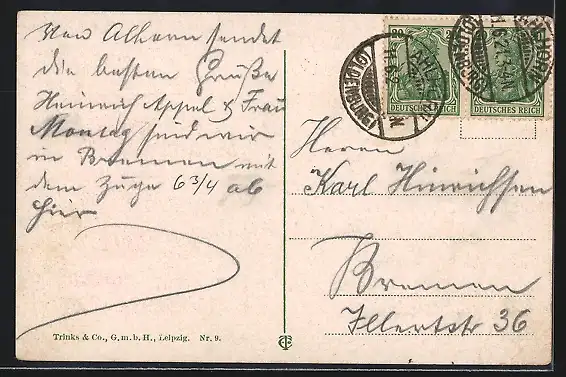 Von Alhorn sendet
die besten Grüße
Heinrich Appel & Frau
Montag sind wir
in Bremen mit
dem Zuge 6 3/4 ab
hier
Trinks & Co., G. m. b. H., Leipzig. Nr. 9.
DEUTSCHES REICH
DEUTSCHES REICH
AHLHORN
(OLDENBURG)
Herrn
Karl Hinrichsen
Bremen
Illertstr 36